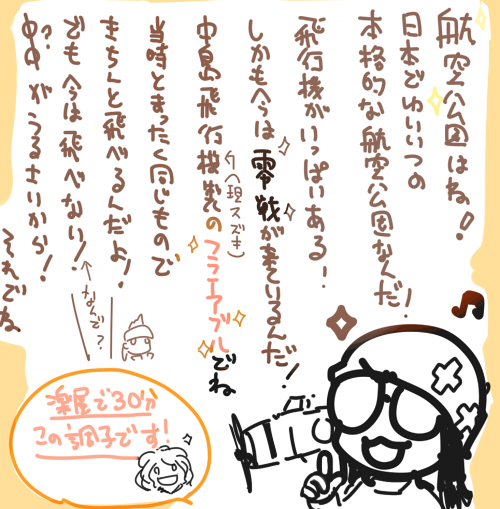 航空公園はね!
日本でゆいいつの
本格的な航空公園なんだ!
飛行機がいっぱいある!
しかも今は零戦が来ているんだ!
中島飛行機製のフライアブルでね
(今現スズキ)
当時とまったく同じもので
きちんと飛べるんだよ!
でも今は飛べない!
←なんで?
がうるさいから!
それでね
楽屋で30分
この調子です!